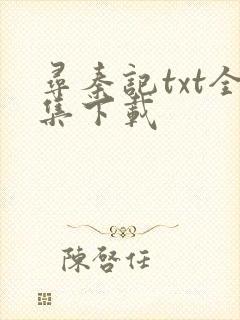 尋秦記txt全
集下載
陳啓任